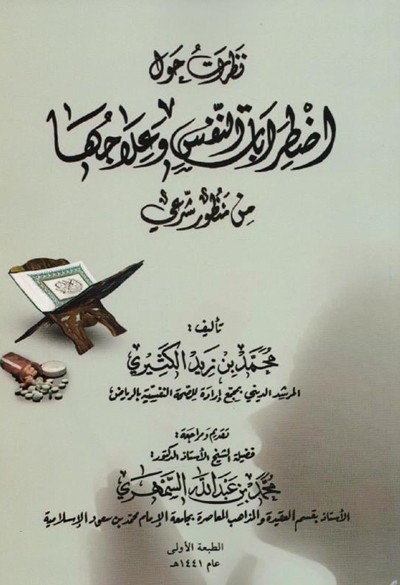 نظرات حول
اضْطِرَابَات النَّفْسِ وَعِلَاجُهَا
مِن مَنظُور شَرعي
تأليف:
محمد بن زيد الكثيري
المرشد الديني بمجمع إرادة للصحة النفسية بالرياض
تقديم ومراجعة:
فضيلة الشيخ الأستاذ الدكتور:
محمد بن عبدالله السمهري
الأستاذ بقسم العقيدة والمذاهب المعاصرة بجامعة الإمام محمد بن سعود الإسلامية
الطبعة الأولى
عام ١٤٤١هـ